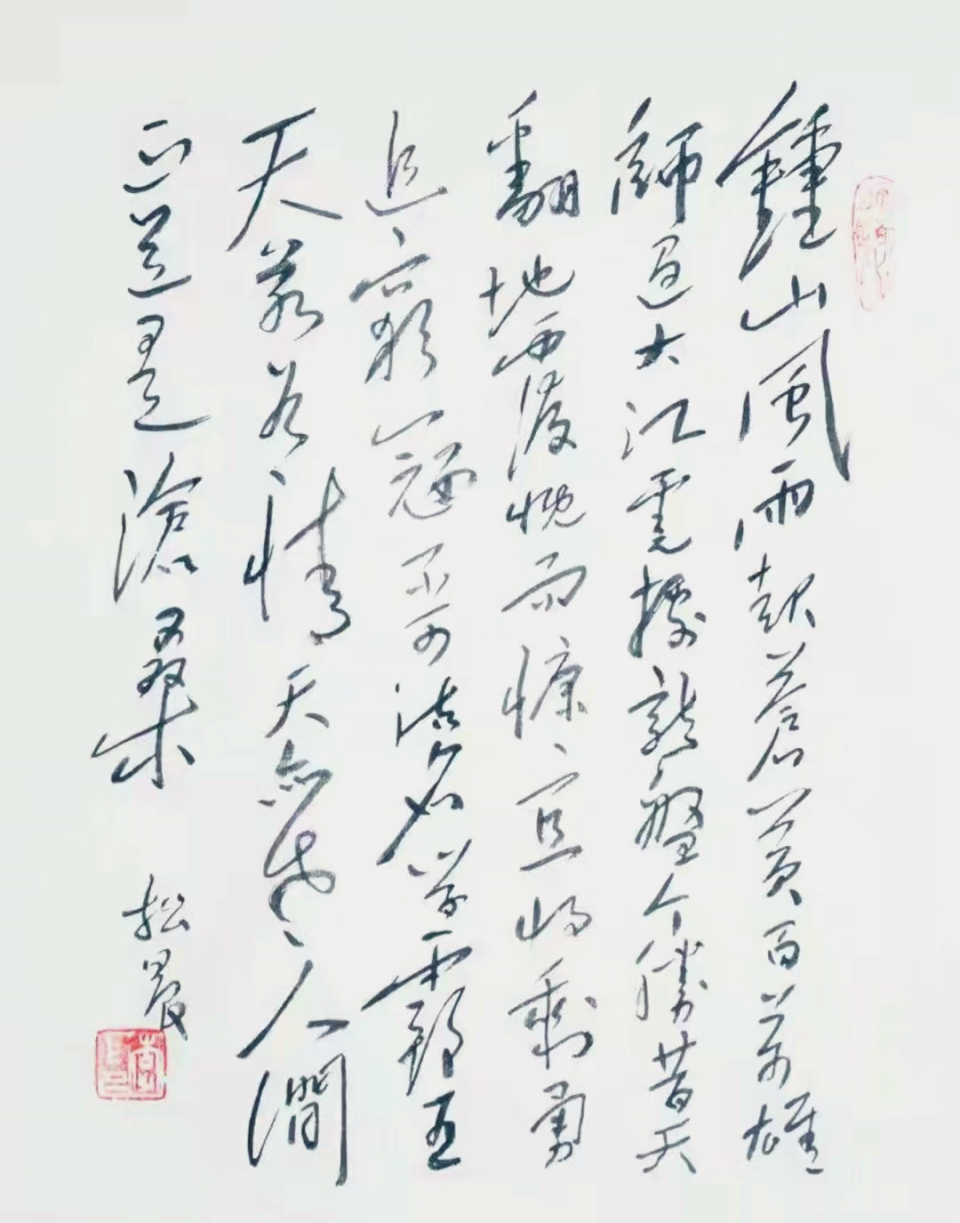 鍾山風雨起蒼黃百萬雄
師過大江虎據龍盤今勝昔天
翻地覆慨而慷宜將剩勇
追窮寇不可沽名學霸王
天若有情天亦老人間
正道是滄桑
松晨